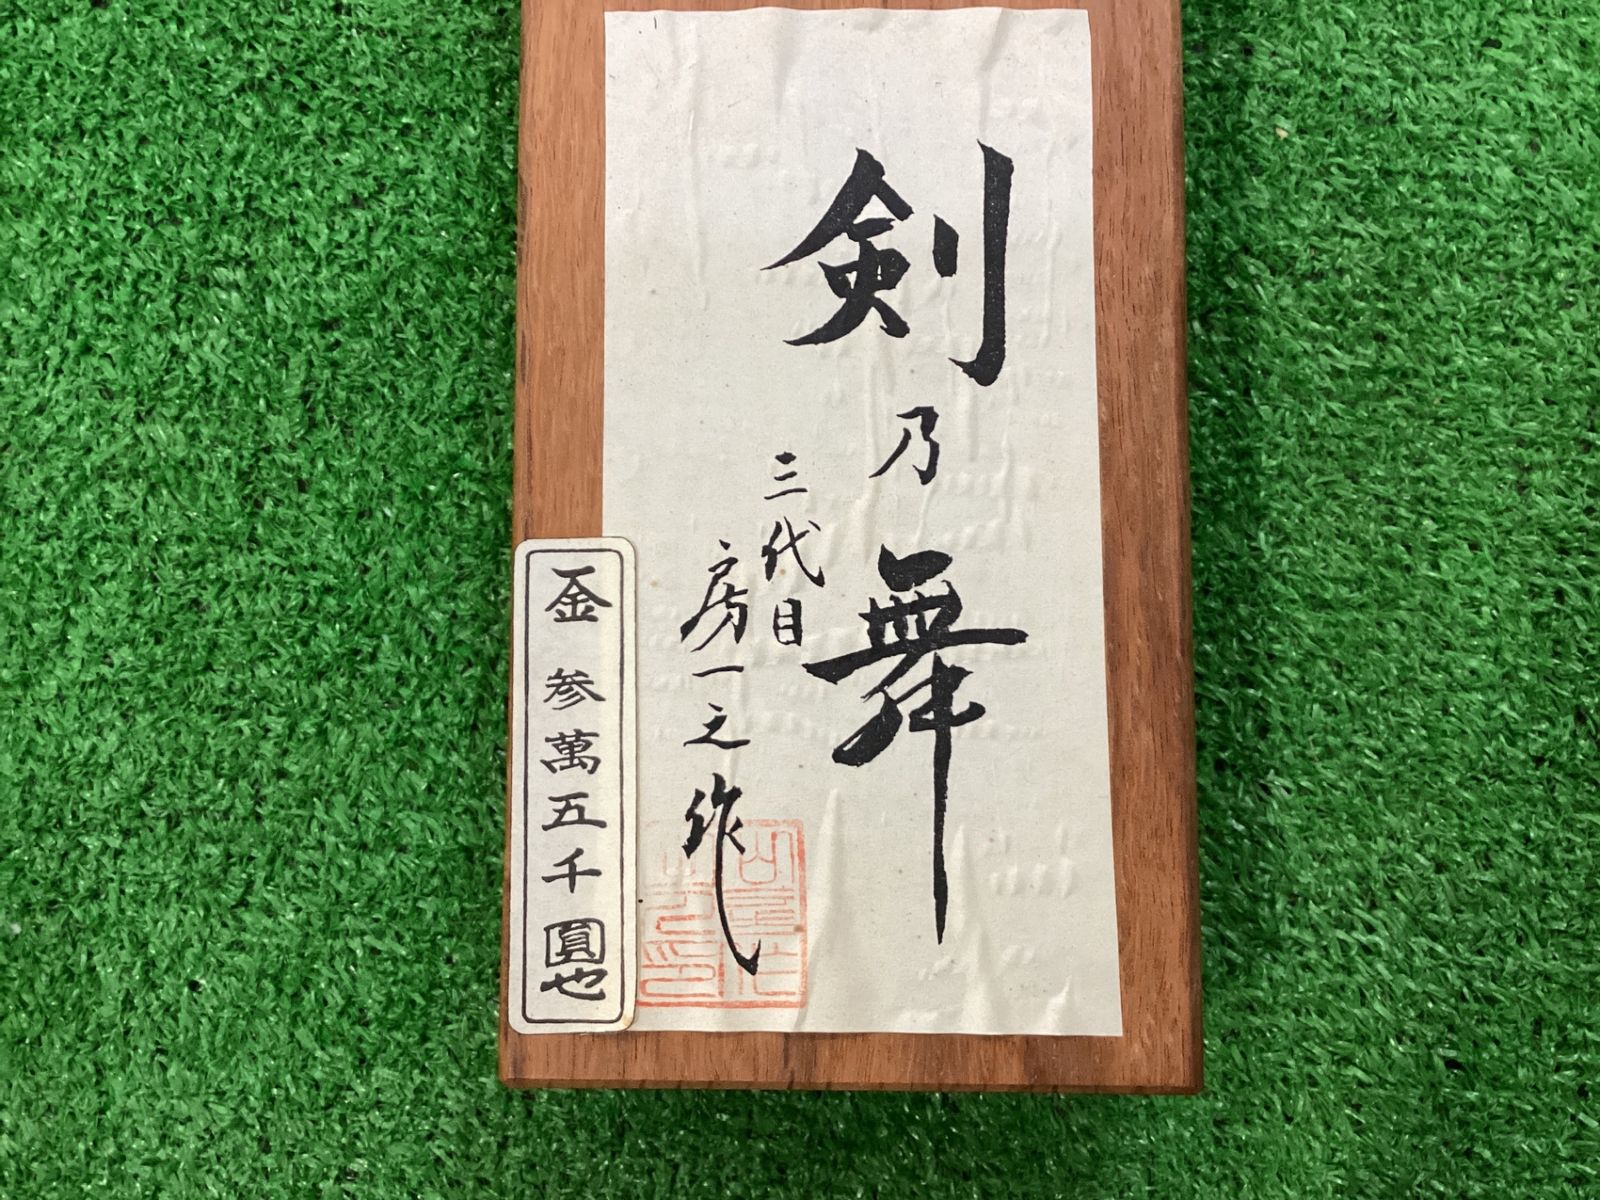 剣乃舞
三代目
房一之作
金参萬五千圓也